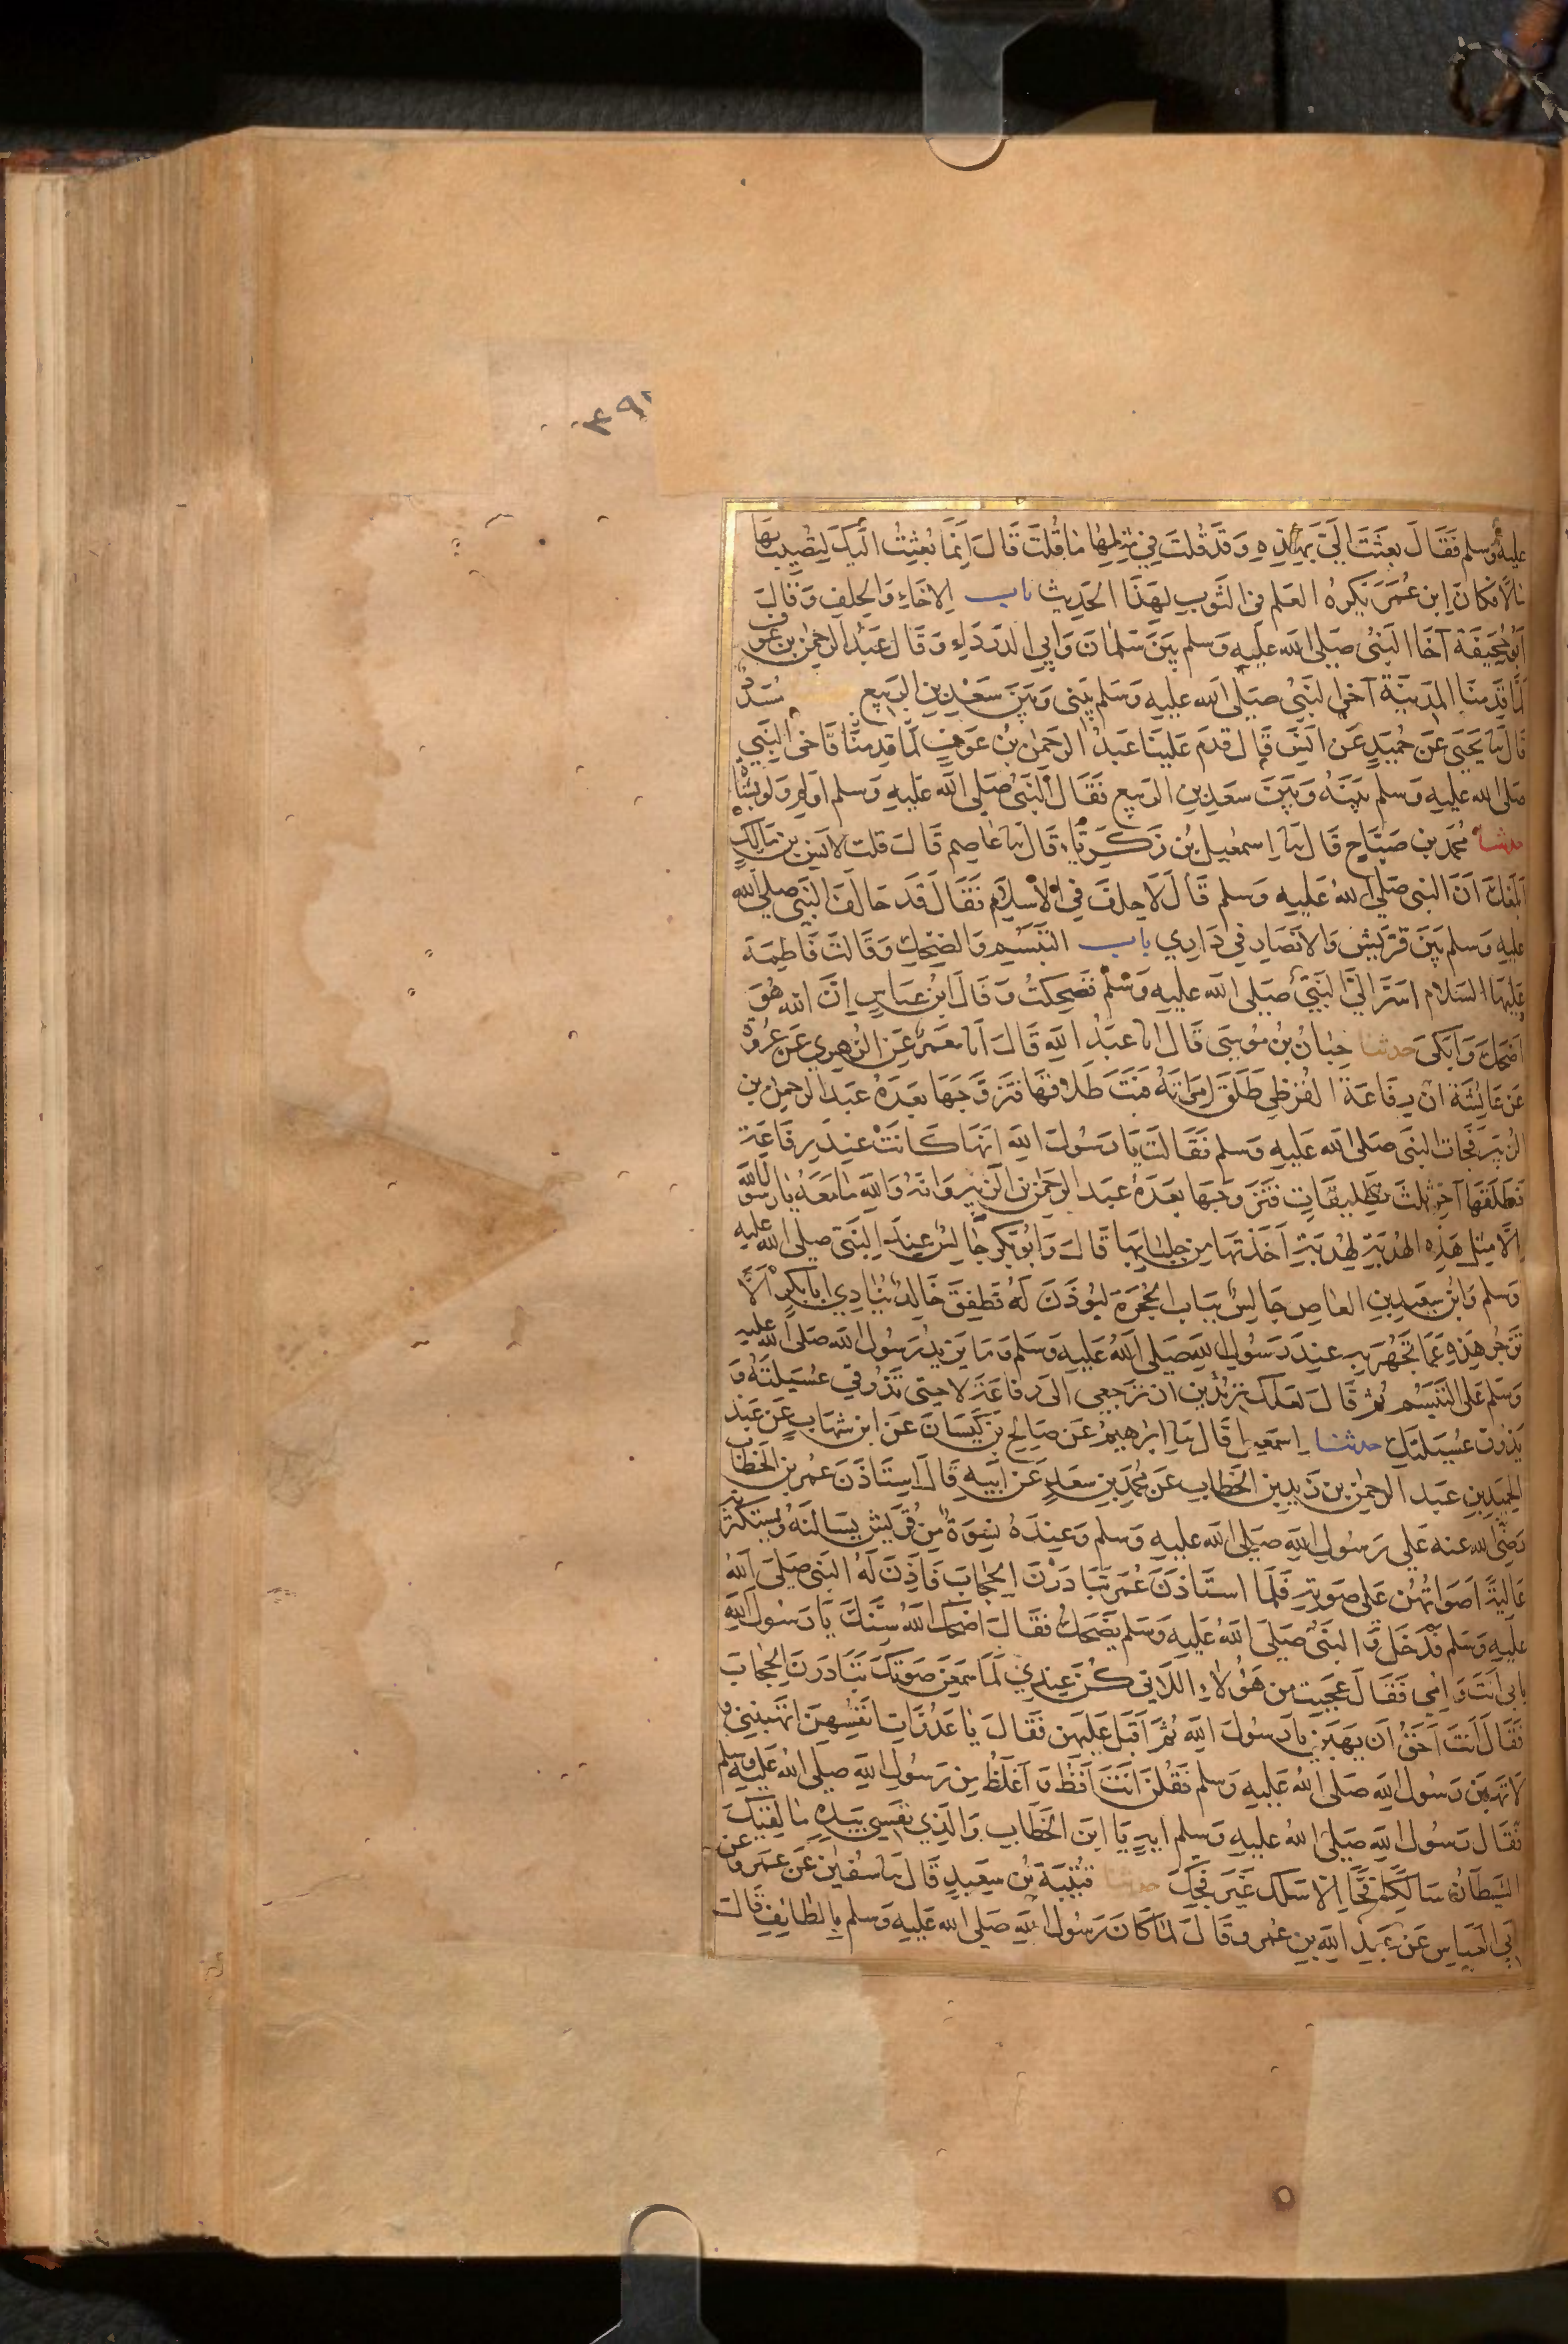 ٤٩٢
عليه وسلم فَقَالَ بعثتَ اِلَيَّ بِهٰذِهِ وَقَدْ قُلتَ فِي مِثلِهَا مَا قُلتَ قَالَ اِنَّمَا بُعِثتُ اِلَيكَ لِتُصِيبَ بِهَا
مَالًا فكانَ ابن عُمَرَ يَكرهُ العَلم في الثَّوبِ لِهَذَا الحَدِيث باب الاخَاءِ وَالحِلفِ وَقَالَ
اَبُو جُحَيفَةَ آخَا النَّبيُّ صَلى الله عليه وَسلم بَينَ سَلمَانَ وَاَبي الدردَاءِ وَقَالَ عَبدُ الرحمٰن بن عَوف
لَمَّا قَدِمنَا المَدِينَةَ آخَى النَّبيُّ صَلى الله عليه وَسَلم بَيني وَبَينَ سَعْدِ بنِ الرَبيع مُسَدَّدٌ
قَالَ نا يَحيَى عَن حُمَيدٍ عَن اَنَسٍ قَالَ قدِمَ عَلينَا عَبدُ الرَحمٰن بنُ عَوفٍ لَمَّا قدِمنَا فَآخى النَّبي
صَلى الله عليه وَسلم بَينَهُ وَبَينَ سعَدِ بنِ الرَبيع فَقَالَ النَّبيُّ صَلى الله عليه وَسلم اَولِم وَلَو بِشَاة
حدثنا مُحَمد بن صَبَّاح قَالَ نا اِسمٰعيل بنُ زَكَرِيَّا قَالَ نا عَاصِم قَالَ قلت لاَنَس بن مَالِكٍ
اَبَلَغَكَ اَنَّ النبي صَلى اللهُ عَليهِ وَسلم قَالَ لَا حِلفَ فِي الاسلَام فَقَالَ قَد حَالَفَ النَّبيُّ صَلى الله
عليه وَسلم بَينَ قرَيشٍ وَالانصَارِ فِي دَارِي باب التَّبَسُّم وَالضحِكِ وَقَالَتْ فَاطِمَة
عَليهَا السَّلام اَسَرَّ اِلَيَّ النَّبيُّ صَلى الله عليه وَسَلم فَضَحِكتُ وَقَالَ ابنُ عَبَاسٍ اِنَّ الله هُوَ
اَضحَكَ وَاَبكَى حدثنا حِبَّانُ بنُ مُوسَى قَالَ انا عبَدُ اللهِ قَالَ اَنا مَعمَرٌ عَنِ الزهري عَن عُروة
عَن عَائِشَة ان رِفَاعَةَ القُرَظِي طَلَّقَ امرَاَتَهُ فَبَتَّ طَلاقهَا فتَزَوَّجَهَا بَعدَهُ عبَد الرحمٰن بن
الزبَير فجَات النبيَّ صَلى الله عَليهِ وَسلم فَقَالَت يَا رَسُولَ الله اِنهَا كَانَتْ عِندَ رِفَاعَة
فَطَلَّقَهَا آخِر ثلثَ تَطلِيقَاتٍ فَتَزَوجَهَا بَعدَهُ عبَد الرحمٰن بن الزبير وَانهُ وَاللهِ مَا مَعَهُ يَا رَسُولَ الله
اِلَّا مِثل هَذِهِ الهُدبَةِ لِهُدبَةٍ اَخَذَتهَا مِن جِلبَابِهَا قَالَ وَاَبُو بَكرٍ جَالِسٌ عِندَ النَّبيِّ صلى الله عليه
وَسلم وَابن سعيدِ بنِ العَاصِ جَالِسٌ بِبَاب الحُجرَةِ لِيُوذَنَ لَهُ فَطَفِقَ خَالِدٌ يُنَادِي اَبَا بَكرٍ اَلَا
تَزجُر هَذِهِ عَمَّا تَجهَر بِهِ عِندَ رَسُولِ اللهِ صَلى اللهُ عَليهِ وَسَلم وَمَا يَزِيدُ رَسُول الله صَلى الله عليه
وَسَلم عَلى التَّبَسُّم ثم قَالَ لعَلكِ تُرِيدِينَ ان تَرجعِي الى رفَاعَةَ لا حتى تَذُوقي عُسَيلَتَهُ وَ
يَذُوقَ عُسَيلَتَكِ حدثنا اِسمعيل قَالَ نا ابرٰهيمُ عَن صَالِحِ بنِ كَيسَانَ عَن ابن شهَابٍ عَن عَبد
الحميدِ بنِ عبَد الرحمٰن بن زَيدِ بنِ الخَطابِ عَن مُحمَّدِ بنِ سعَدٍ عَن اَبِيهِ قَالَ استَاذَنَ عمر بن الخَطاب
رَضي الله عنه عَلى رَسُولِ اللهِ صَلى الله عليهِ وَسلم وَعِندَهُ نِسوَةٌ مِن قُرَيش يَسالنَهُ وَيَستَكثِرنَهُ
عَالِيَةً اَصوَاتُهُن عَلى صَوتِهِ فَلَمَا استَاذَنَ عُمَر تبَادَرْنَ الحِجَابَ فَاَذِنَ لَهُ النبيُّ صَلى اللهُ
عليهِ وَسَلم فَدَخَل وَ النبيُّ صَلى اللهُ عَليهِ وَسَلم يضحَكُ فقَالَ اَضحَكَ اللهُ سِنَّكَ يَا رَسُولَ اللهِ
بابي اَنتَ وَامي فَقَالَ عجبت من هَؤُلاءِ اللَاتي كُنَّ عِندِي لَمَّا سَمعِنَ صَوتَكَ تَبَادَرنَ الحِجَابَ
فَقَالَ اَنتَ اَحَقُّ اَن يهَبنَ يا رَسُولَ اللهِ ثُمَّ اَقبَل عَليهِن فَقَالَ يَا عَدُوَّاتِ انفُسِهِنَّ اَتَهَبنَنِي وَ
لَا تَهَبنَ رَسُولَ اللهِ صَلى اللهُ عَليهِ وَسلم فَقُلنَ اَنتَ اَفَظُّ وَ اَغلَظُ مِن رَسُولِ اللهِ صَلى اللهُ عَليه وسلم
فَقَالَ رَسُول اللهِ صَلى اللهُ عليهِ وَسلم ايهٍ يَا ابنَ الخَطَابِ وَالَّذِي نفسي بيَدِهِ مَا لَقيَكَ
الشَيطَانُ سَالِكًا فَجًّا اِلّا سَلكَ غَيرَ فَجِّكَ حدثنا قتَيبَة بنُ سعَيدٍ قَالَ نا سُفيٰن عَن عَمروٍ عن
اَبي العَباسِ عَن عَبدِ اللهِ بنِ عمرو قَالَ لمَّا كَانَ رَسُولُ اللهِ صَلى الله عَليهِ وَسلم بِالطائِفِ قَالَ